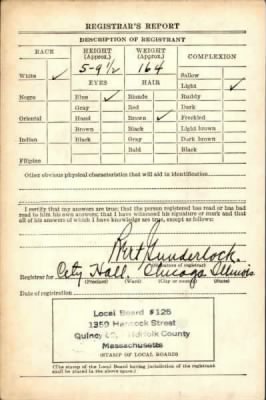 REGISTRAR'S REPORT
DESCRIPTION OF REGISTRANT
RACE HEIGHT (Approx.) WEIGHT (Approx.) COMPLEXION
White ✓ 5-9½ 164 Sallow
EYES HAIR Light ✓
Negro Blue ✓ Blonde Ruddy
Gray Red Dark
Oriental Hazel Brown ✓ Freckled
Brown Black Light brown
Indian Black Gray Dark brown
Bald Black
Filipino
Other obvious physical characteristics that will aid in identification
I certify that my answers are true; that the person registered has read or has had
read to him his own answers; that I have witnessed his signature or mark and that
all of his answers of which I have knowledge are true, except as follows:
Gunderlock.
(Signature of registrar)
Registrar for City Hall. Chicago Illinois
(Precinct) (Ward) (City or county) (State)
Date of registration
Local Board #125
1359 Hancock Street
Quincy Norfolk County
Massachusetts
(STAMP OF LOCAL BOARD)
(The stamp of the Local Board having jurisdiction of the registrant
shall be placed in the above space.)